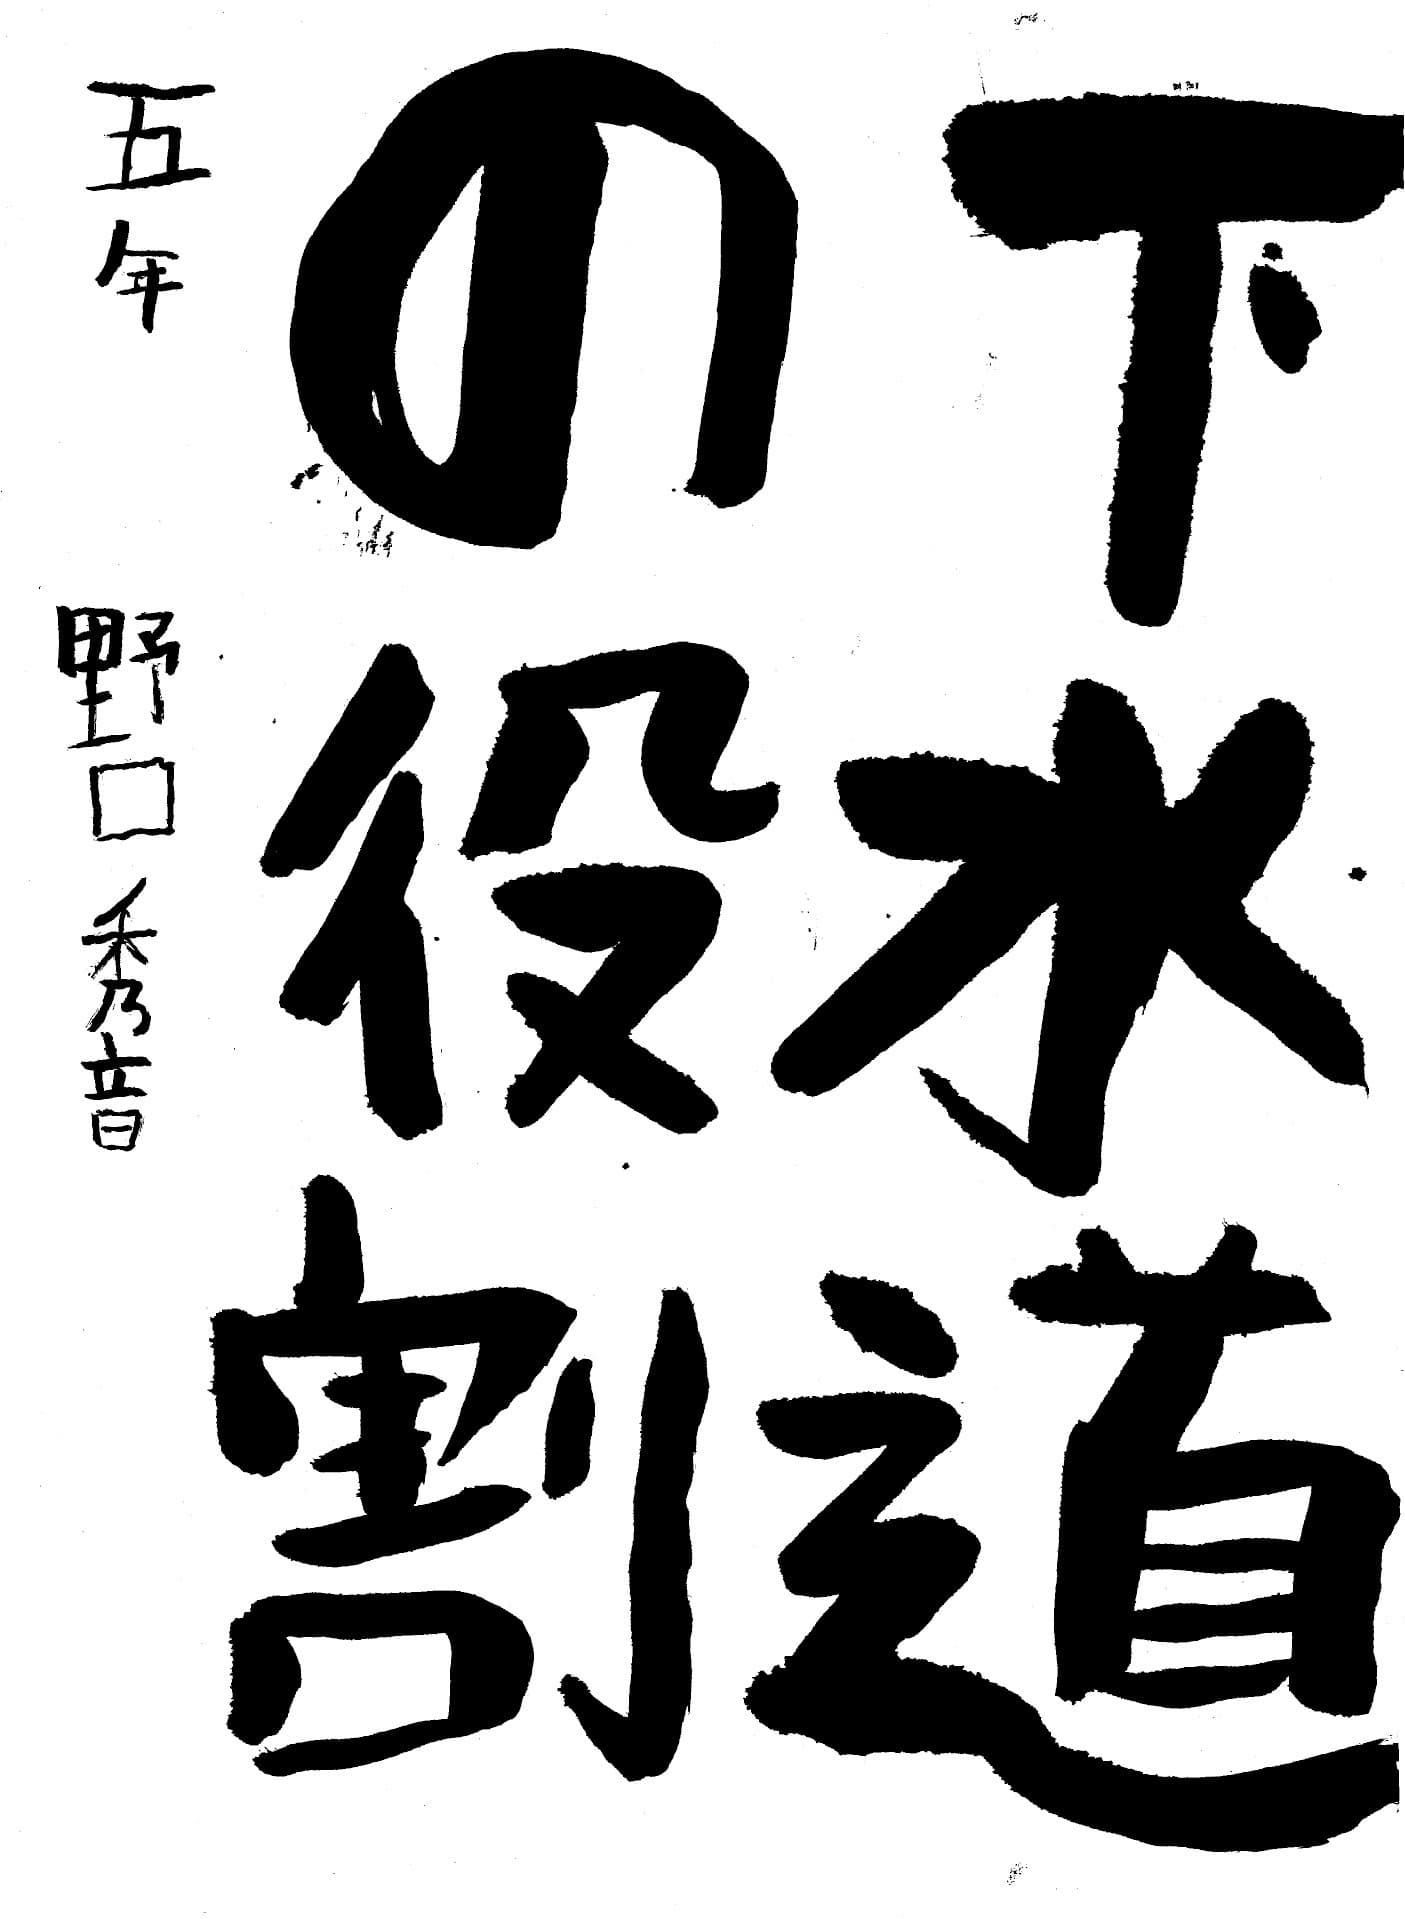 下水道
の役割
五年 野口秀音